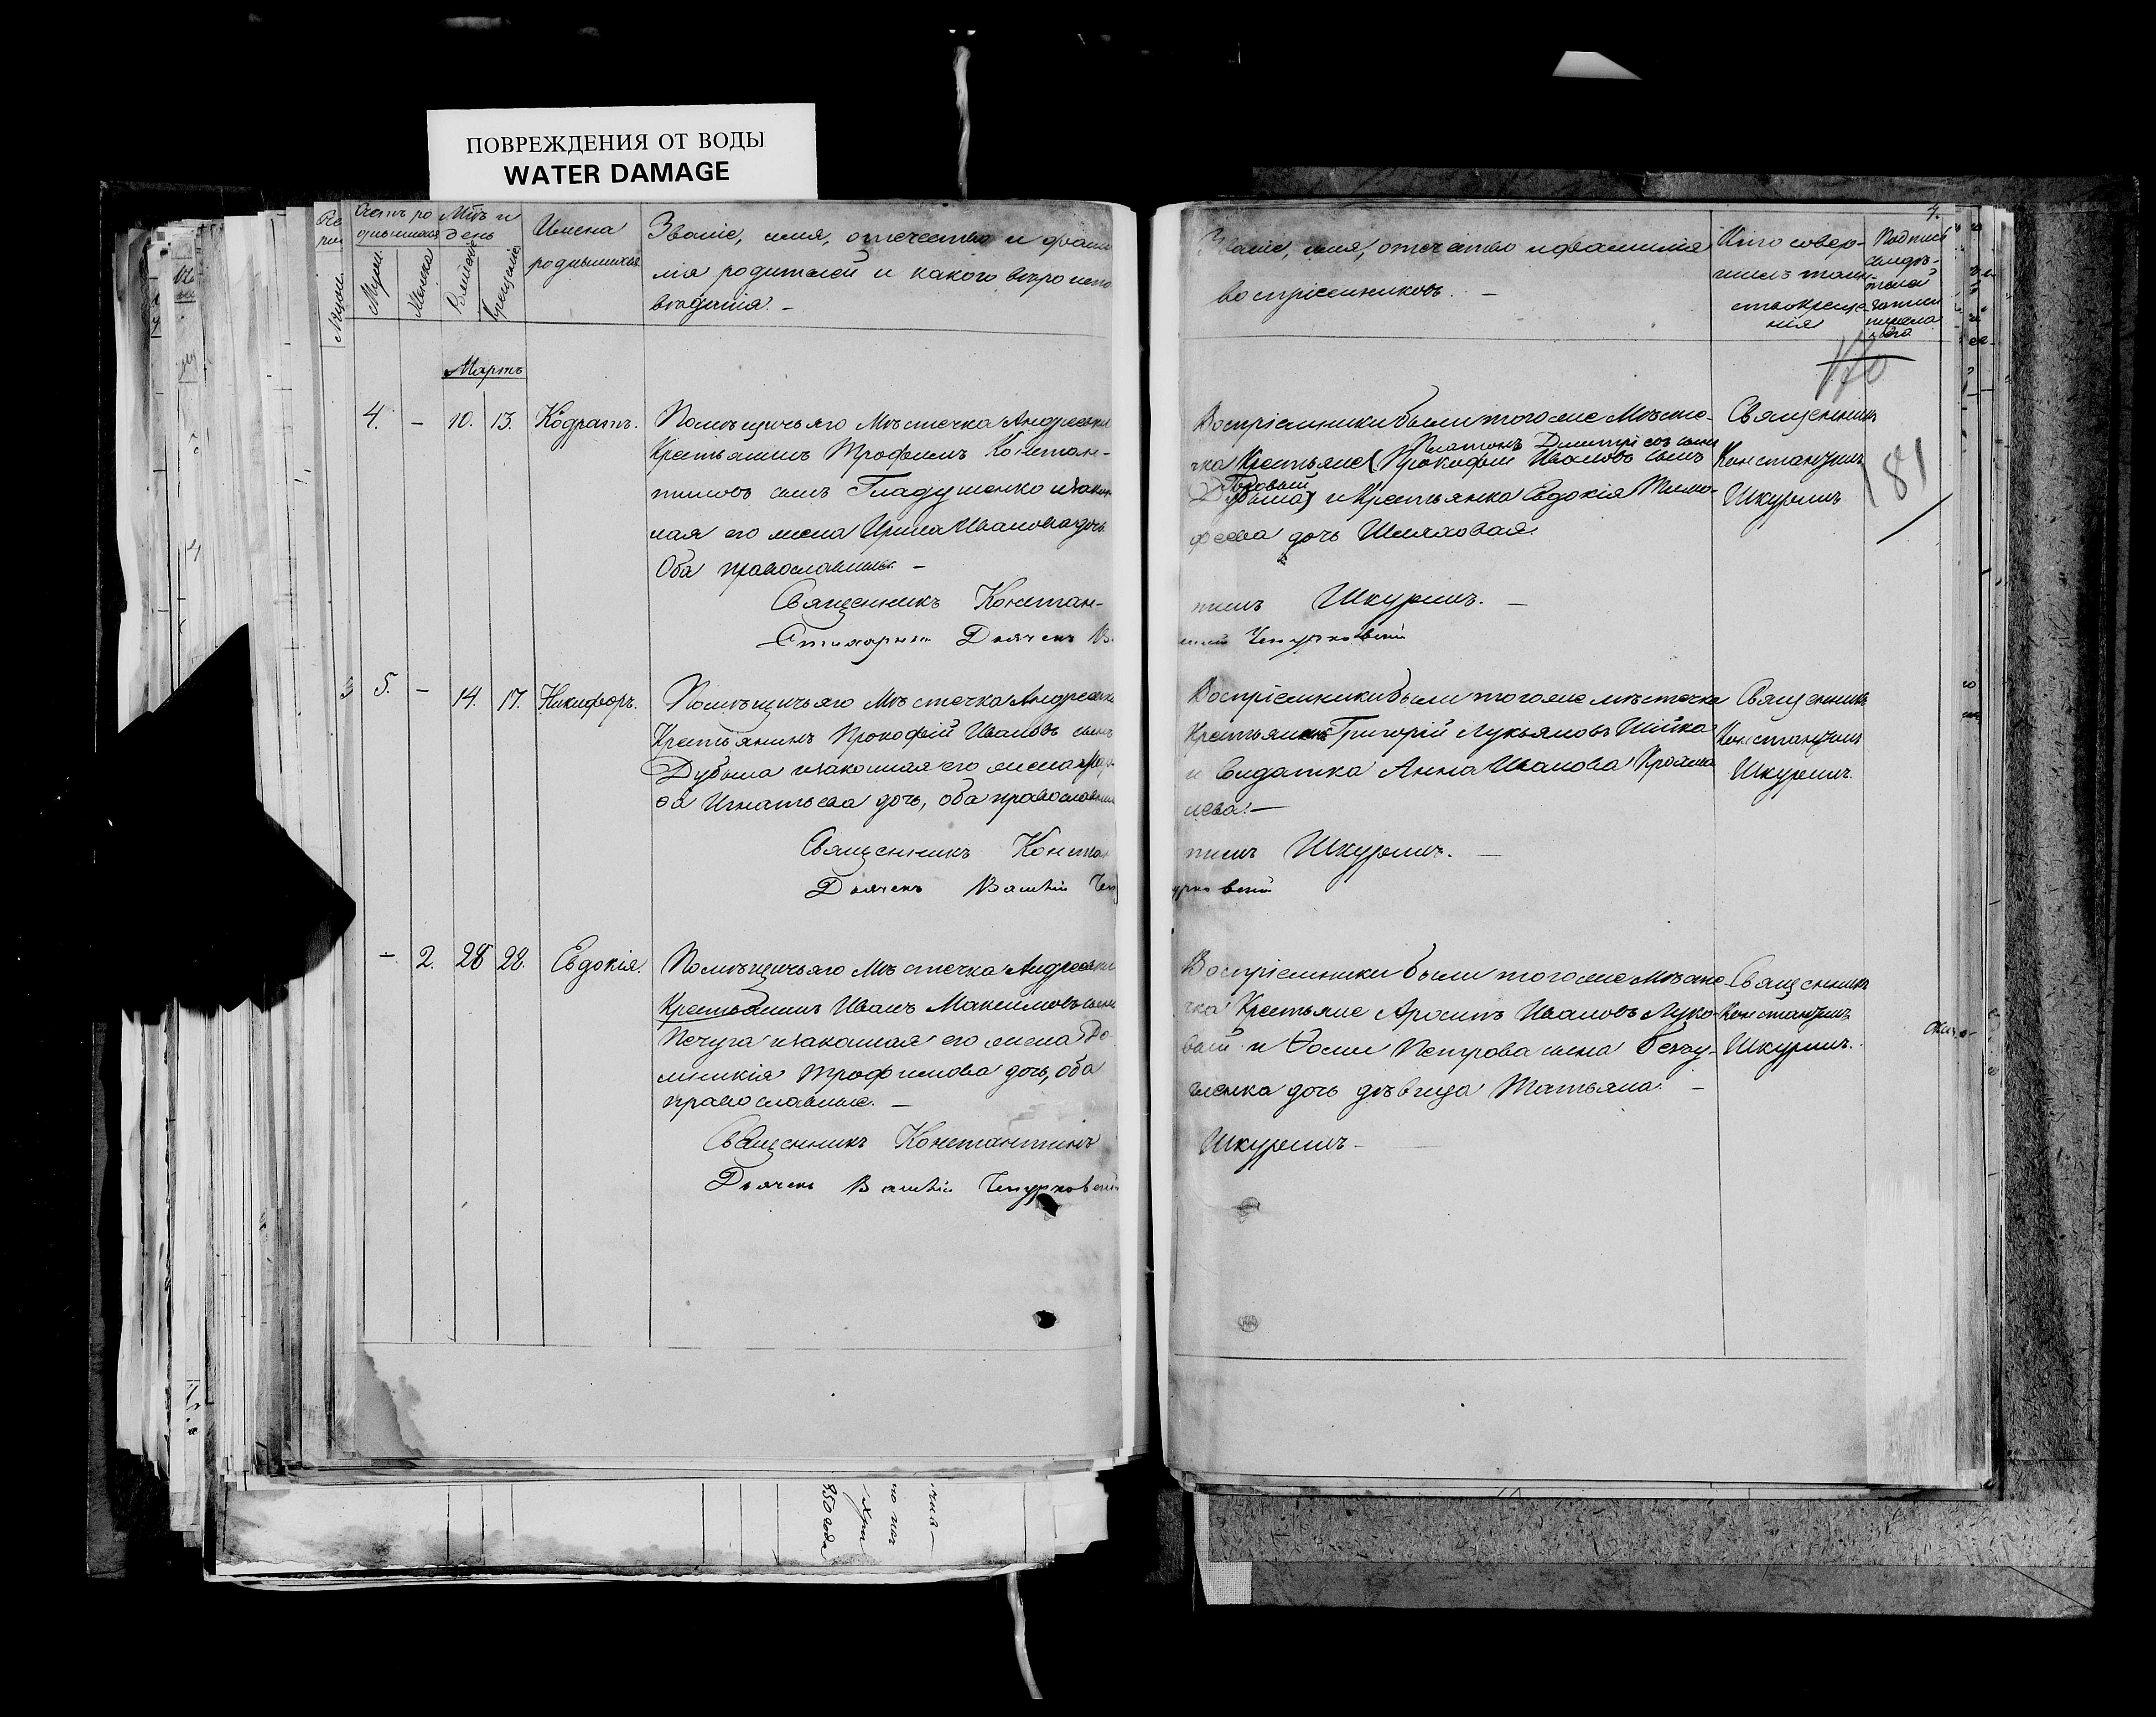 ПОВРЕЖДЕНИЯ ОТ ВОДЫ
WATER DAMAGE
Счетъ ро
дившихся
Мцъ и
день
Имена
родившихся
Званіе, имя, отечество и фами
лія родителей и какого вѣроиспо
вѣданія. —
Муж.
Женска
Крещенія
Мартъ
4. — 10. 13. Кодратъ.
Помѣщичьяго Мѣстечка Андреевки
Крестьянинъ Трофимъ Констан-
тиновъ сынъ Гладушенко и закон
ная его жена Ирина Иванова дочь
Оба православные —
Священникъ Констан-
Стихарный Дьячекъ В
5. — 14. 17. Никифоръ.
Помѣщичьяго Мѣстечка Андреевки
Крестьянинъ Прокофій Ивановъ сынъ
Дубына и законная его жена
Игнатьева дочь, оба православные
Священникъ Констан
Дьячекъ Василій Чеп
— 2. 28 28. Евдокія.
Помѣщичьяго Мѣстечка Андреевки
Крестьянинъ Иванъ Максимовъ сынъ
Печуга и законная его жена До
миникія Трофимова дочь, оба
православные. —
Священникъ Константинъ
Дьячекъ Василій Чепурковскій
4.
Званіе, имя, отечество и фамилія
воспріемниковъ. —
Кто совер-
шилъ таин-
ство креще-
нія
Подпись
свидѣ-
телей
записи
170
181
Воспріемники были того же Мѣсте-
Платонъ Дмитріевъ сынъ
чка Крестьяне (Прокофій Ивановъ сынъ
Дубына) и Крестьянка Евдокія Тимо-
феева дочь Шляховая.
Священникъ
Константинъ
Шкуринъ
тинъ Шкуринъ. —
Чепурковскій
Воспріемники были того же мѣстечка
Крестьянинъ Григорій Лукьяновъ Шійка
и Солдатка Анна Иванова
нева. —
Священникъ
Константинъ
Шкуринъ.
тинъ Шкуринъ. —
урковскій
Воспріемники были того же Мѣсте-
чка Крестьяне Ивановъ Луко-
вый и Петрова сына
ченка дочь дѣвица Татьяна. —
Священникъ
Константинъ
Шкуринъ.
Шкуринъ —
850 года